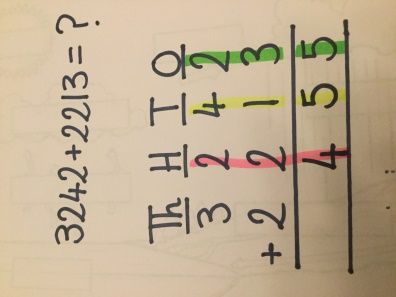 3242+2213=?
Th H T O
3 2 4 2
+ 2 2 1 3
4 5 5